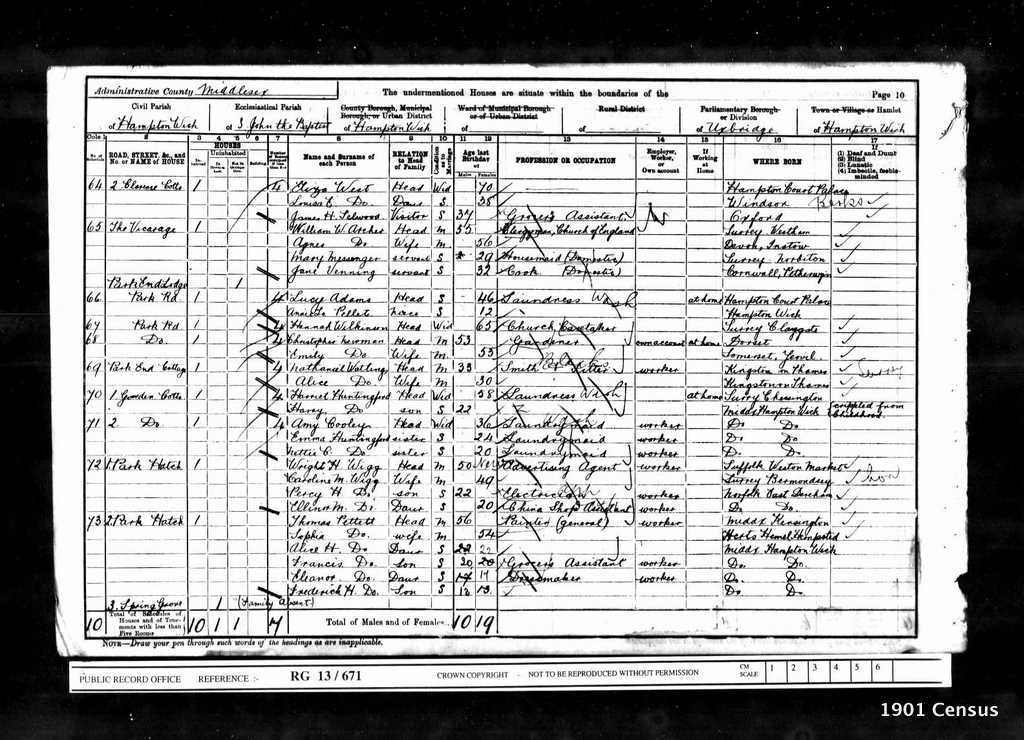 Administrative County Middlesex
The undermentioned Houses are situate within the boundaries of the
Page 10
Civil Parish
of Hampton Wick
Ecclesiastical Parish
of S. John the Baptist
County Borough, Municipal Borough, or Urban District
of Hampton Wick
Ward of Municipal Borough or of Urban District
of
Rural District
of
Parliamentary Borough or Division
of Uxbridge
Town or Village or Hamlet
of Hampton Wick
Cols. 1 2 3 4 5 6 7 8 9 10 11 12 13 14 15 16 17
ROAD, STREET, &c., and No. or NAME of HOUSE
HOUSES
Uninhabited
Building
Name and Surname of each Person
RELATION to Head of Family
Condition as to Marriage
Age last Birthday of
Males Females
PROFESSION OR OCCUPATION
Employer, Worker, or Own account
If Working at Home
WHERE BORN
If (1) Deaf and Dumb (2) Blind (3) Lunatic (4) Imbecile, feeble-minded
64 2 Clarence Cotts 1 4 Eliza West Head Wid 70 Hampton Court Palace
Louisa E. Do. Daur S 35 Windsor Berks
James H. Selwood Visitor S 37 Grocers Assistant Oxford
65 The Vicarage 1 William W. Archer Head M 55 Clergyman, Church of England Surrey Westham
Agnes Do. Wife M 56 Devon, Instow
Mary Messenger servant S 29 Housemaid (Domestic) Surrey Norbiton
Jane Venning servant S 32 Cook (Domestic) Cornwall,
Park End Lodge 1
66 Park Rd 1 4 Lucy Adams Head S 46 Laundress Wash at home Hampton Court Palace
Pellet Niece S 12 Hampton Wick
67 Park Rd 1 4 Hannah Wilkinson Head Wid 65 Church Caretaker Surrey Claygate
68 Do. 1 4 Christopher Newman Head M 53 Gardener own account at home Dorset
Emily Do. Wife M 55 Somerset, Yeovil
69 Park End Cottage 1 4 Nathaniel Watling Head M 33 Smith & Fitter worker Kingston on Thames
Alice Do. Wife M 30 Kingston on Thames
70 1 Gowan Cotts 1 4 Harriet Huntingford Head Wid 58 Laundress Wash at home Surrey Chessington
Harry Do. son S 22 Middx Hampton Wick crippled from Childhood
71 2 Do. 1 4 Amy Cooley Head Wid 36 Laundrymaid worker Do. Do.
Emma Huntingford sister S 24 Laundrymaid worker Do. Do.
Nettie E. Do. sister S 20 Laundrymaid worker Do. Do.
72 1 Park Hatch 1 Wright H. Wigg Head M 50 Advertising Agent worker Suffolk Weston Market
Caroline M. Wigg Wife M 49 Surrey Bermondsey
Percy H. Do. son S 22 Electrician worker Norfolk East Dereham
Ellinor M. Do. Daur S 20 China Shop Assistant worker Do. Do.
73 2 Park Hatch 1 Thomas Pettett Head M 56 Painter (general) worker Middx Kensington
Sophia Do. wife M 54 Herts Hemel Hempsted
Alice H. Do. Daur S 22 Middx Hampton Wick
Francis Do. son S 20 Grocers Assistant worker Do. Do.
Eleanor Do. Daur S 17 Dressmaker worker Do. Do.
Frederick H. Do. Son S 13 Do. Do.
3. Spring Grove 1 (Family Absent)
10 Total of Schedules of Houses and of Tenements with less than Five Rooms 10 1 1 7 Total of Males and of Females 10 19
NOTE—Draw your pen through such words of the headings as are inapplicable.
PUBLIC RECORD OFFICE REFERENCE :- RG 13/671 CROWN COPYRIGHT - NOT TO BE REPRODUCED WITHOUT PERMISSION CM SCALE 1 2 3 4 5 6
1901 Census